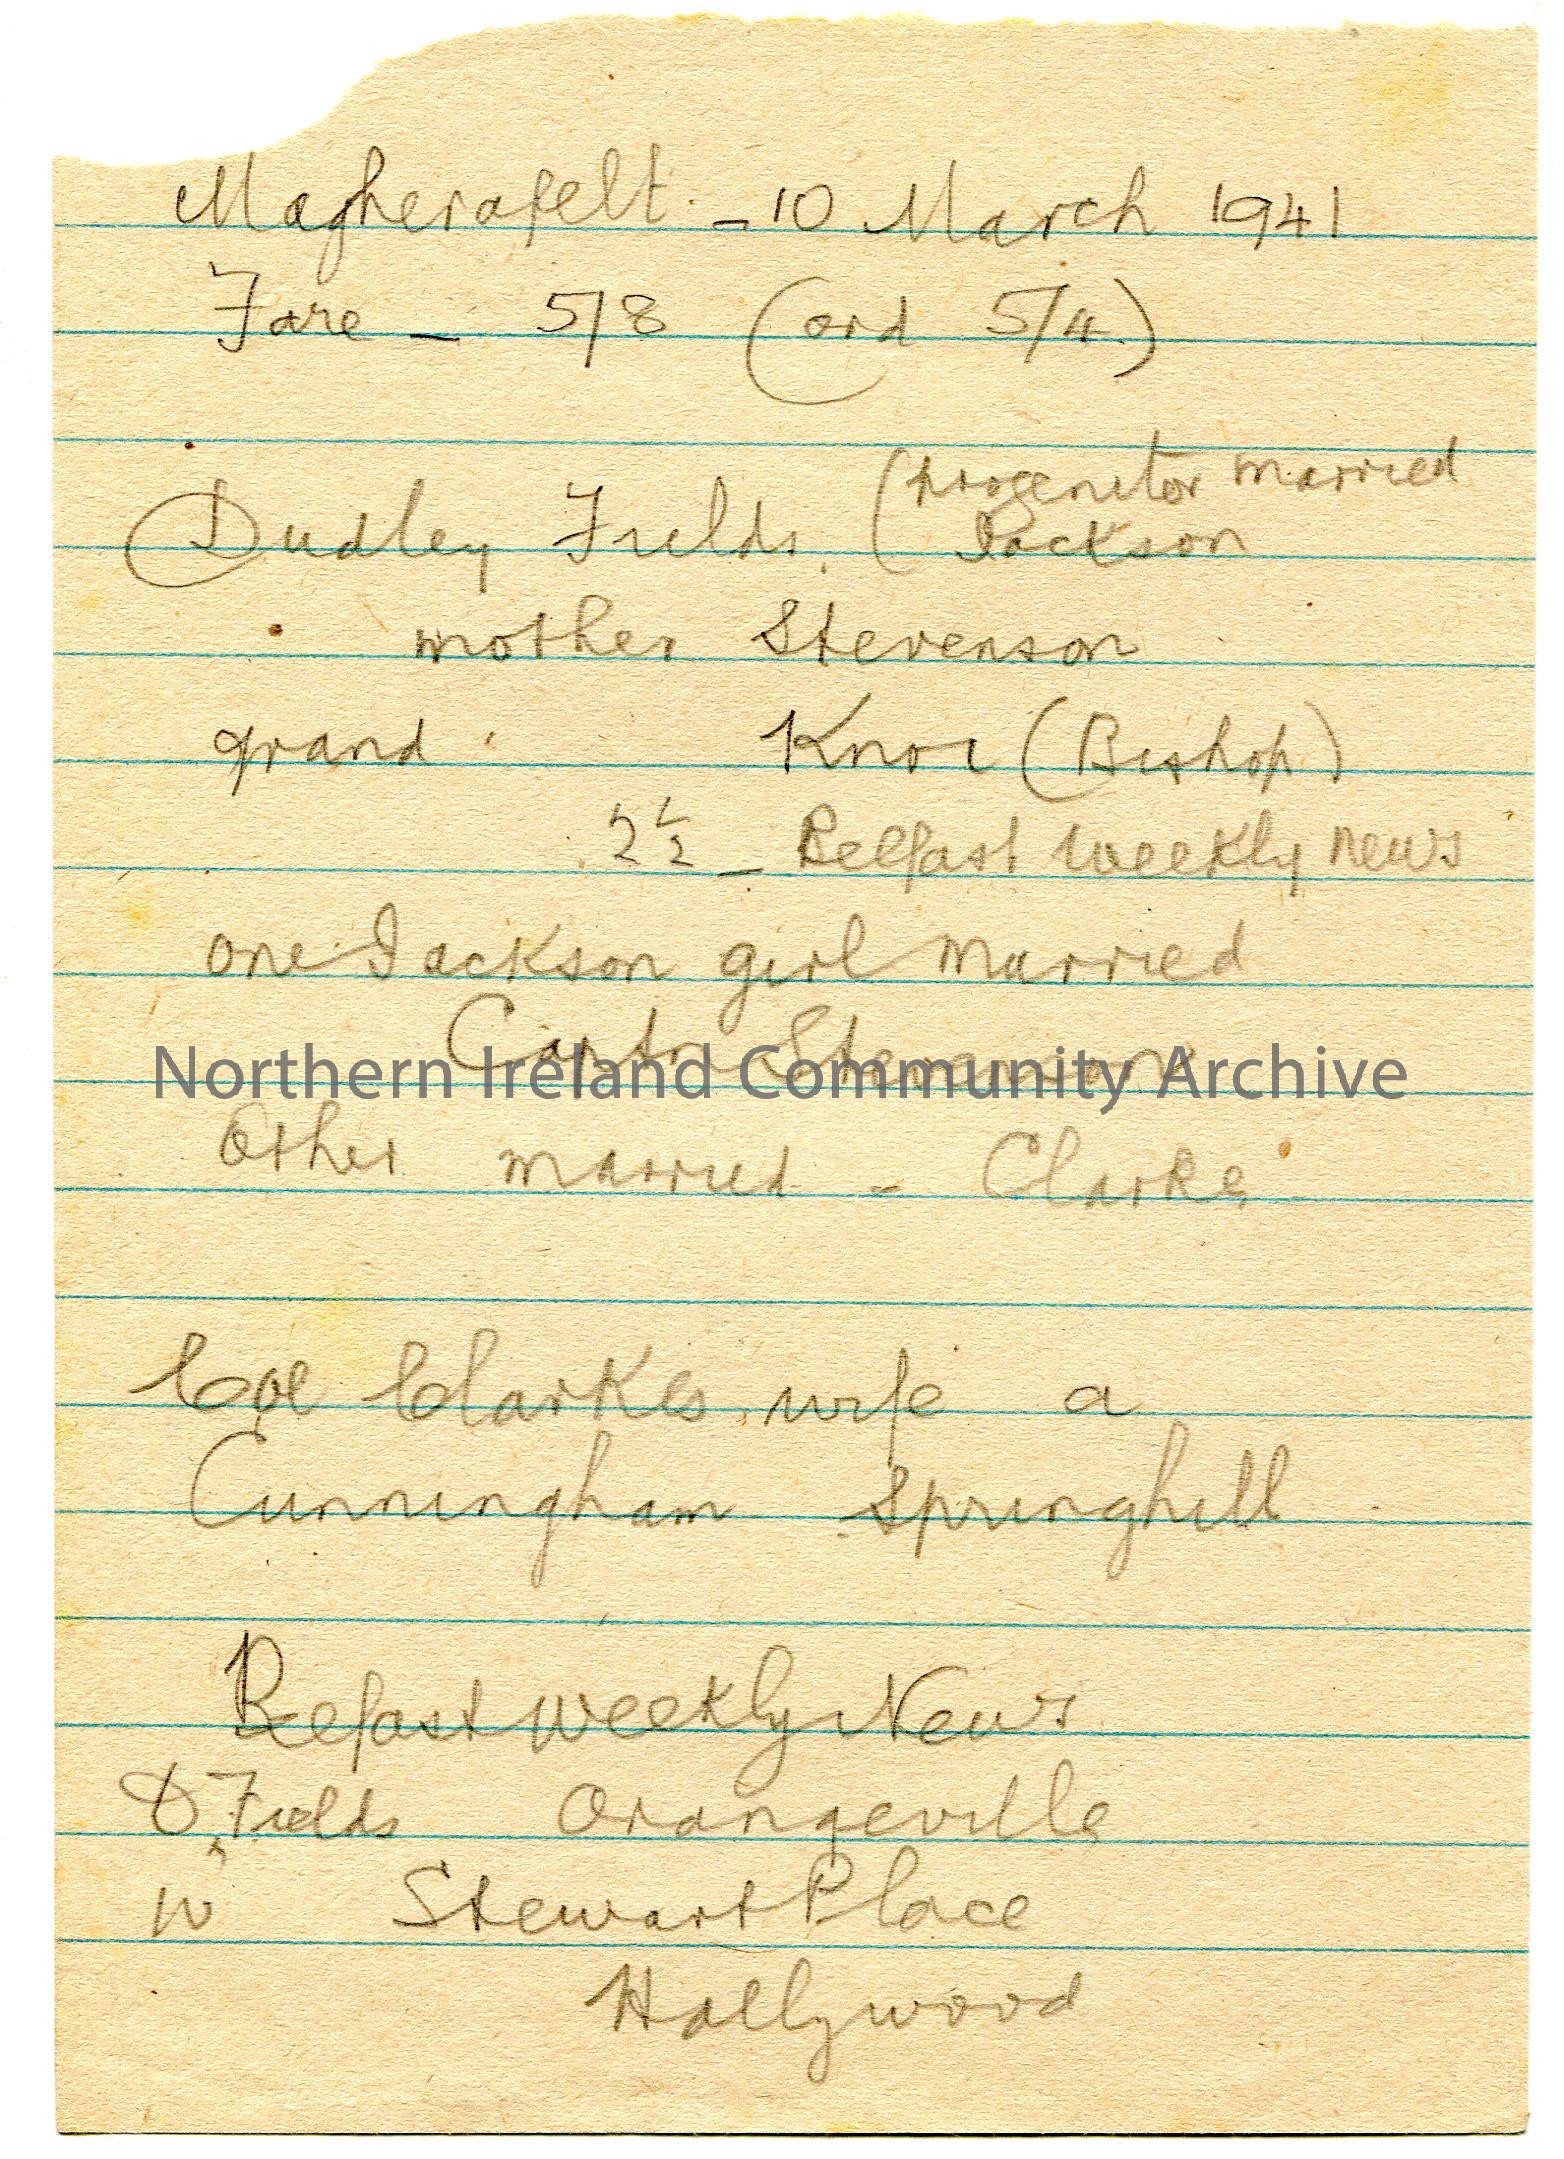 Magherafelt - 10 March 1941
Fare - 5/8 (ord 5/4)
Dudley Fields. (progenitor married
Jackson
mother Stevenson
grand " Knox (Bishop)
2 1/2 - Belfast Weekly News
one Jackson girl married
Captn Stevenson
Northern Ireland Community Archive
Other married - Clarke
Col Clarkes wife a
Cunningham Springhill
Belfast Weekly News
D Fields Orangeville
W Stewart Place
Hollywood